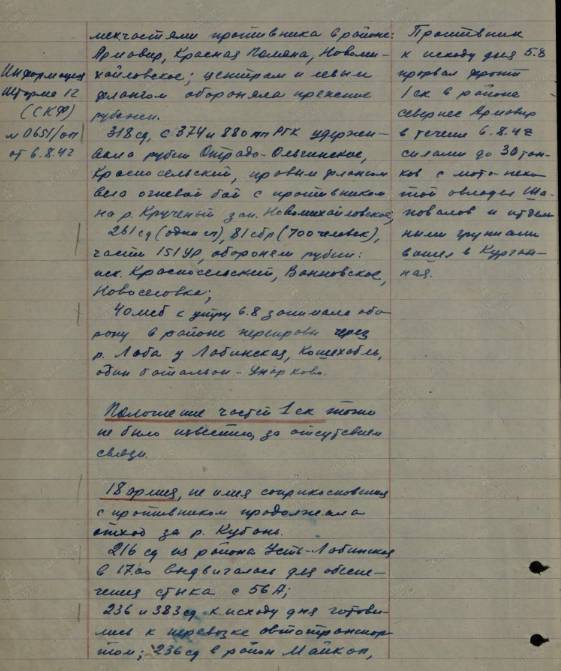 Информация
Штарма 12
(СКФ)
№ 0651/оп
от 6.8.42
мехчастями противника в районе:
Армавир, Красная Поляна, Новоми-
хайловское; центром и левым
флангом обороняла прежние
рубежи.
318 сд, с 374 и 880 пп РГК удержи-
вала рубеж Отрадо-Ольгинское,
Красносельский, правым флангом
вела огневой бой с противником
на р. Крученый зап. Новомихайловское,
261 сд (один сп), 81 сбр (700 человек),
части 151 УР, обороняли рубеж:
иск. Красносельский, Ванновское,
Новоселовка;
40 мсб к утру 6.8 занимала обо-
рону в районе переправы через
р. Лаба у Лабинская, Кошехабль,
один батальон - Унароково.
Положение частей 1 ск точно
не было известно, за отсутствием
связи.
18 армия, не имея соприкосновения
с противником продолжала
отход за р. Кубань.
216 сд из района Усть-Лабинская
в 17.00 выдвигалась для обеспе-
чения стыка с 56 А;
236 и 383 сд к исходу дня готови-
лись к перевозке автотранспор-
том; 236 сд в район Майкоп,
Противник
к исходу дня 5.8
прорвал фронт
1 ск в районе
севернее Армавир
в течение 6.8.42
силами до 30 тан-
ков с мотопехо-
той овладел Ша-
повалов и отдель-
ными группами
вышел в Курган-
ная.